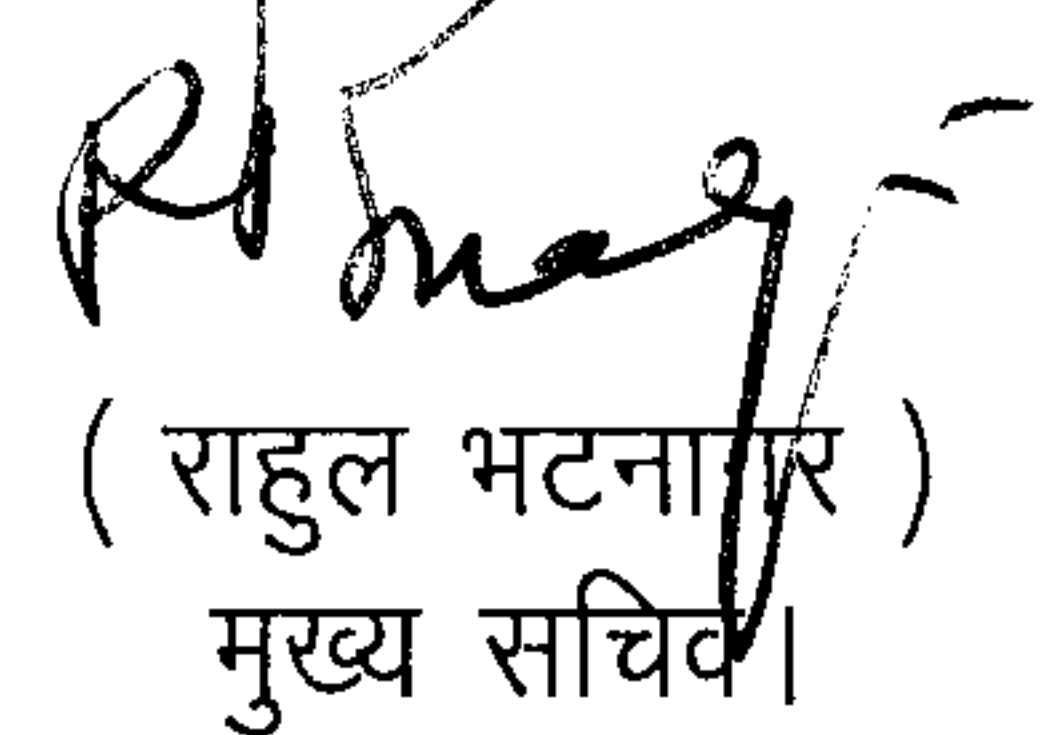 ( राहुल भटनागर )
मुख्य सचिव।